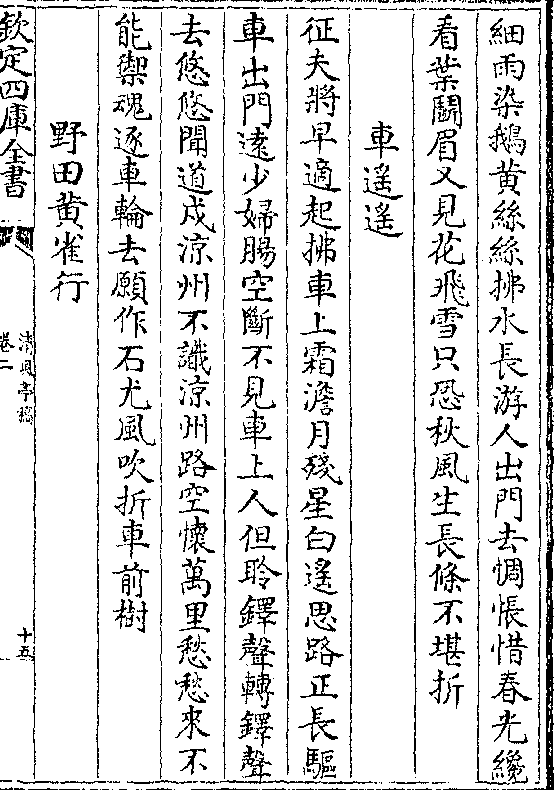 細雨染鵝黄絲絲拂水長游人出門去惆悵惜春光纔
看葉鬭眉又見花飛雪只恐秋風生長條不堪折
車遥遥
征夫將早適起拂車上霜澹月殘星白遥思路正長驅
車出門逺少婦腸空斷不見車上人但聆鐸聲轉鐸聲
去悠悠聞道戍涼州不識涼州路空懷萬里愁愁來不
能禦魂逐車輪去願作石尤風吹折車前樹
野田黄雀行
欽定四庫全書
清風亭稿
卷二
十五